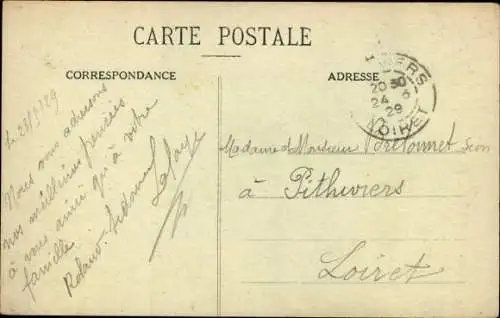 CARTE POSTALE
CORRESPONDANCE
ADRESSE
Nous vous adressons
nos meilleures pensées
à vous ainsi qu'à votre
famille
Lafaye
20 30
24 6
29
LOIRET
Madame et Monsieur
à Pithiviers
Loiret